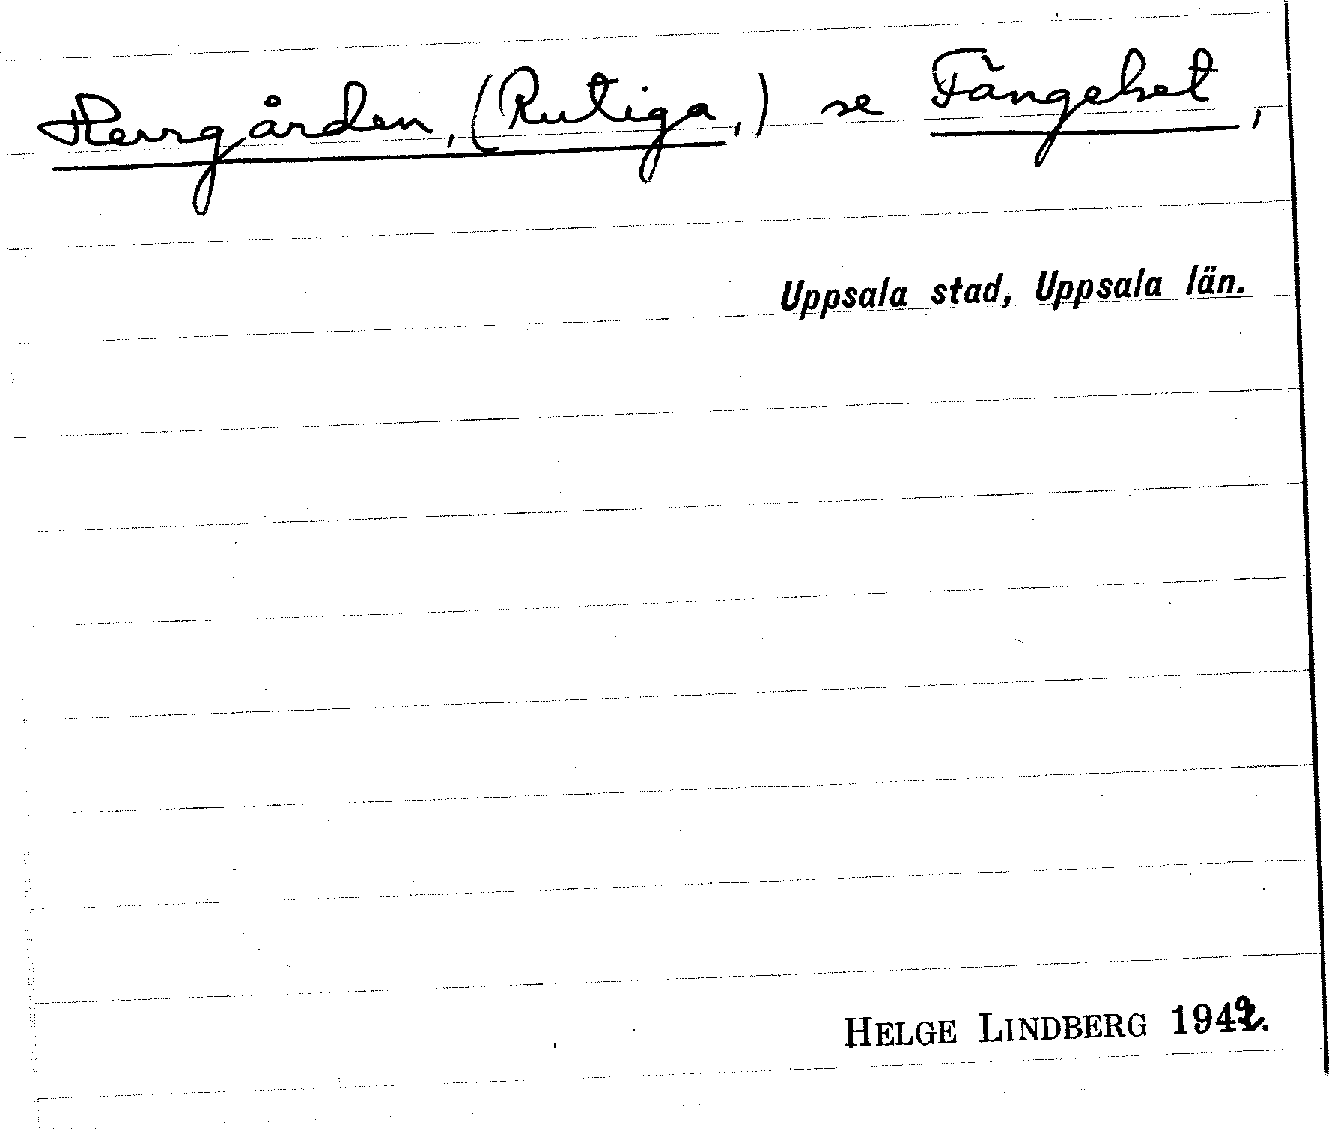 Herrgården, (Rutiga,) se Fängelset,
Uppsala stad, Uppsala län.
HELGE LINDBERG 1942.